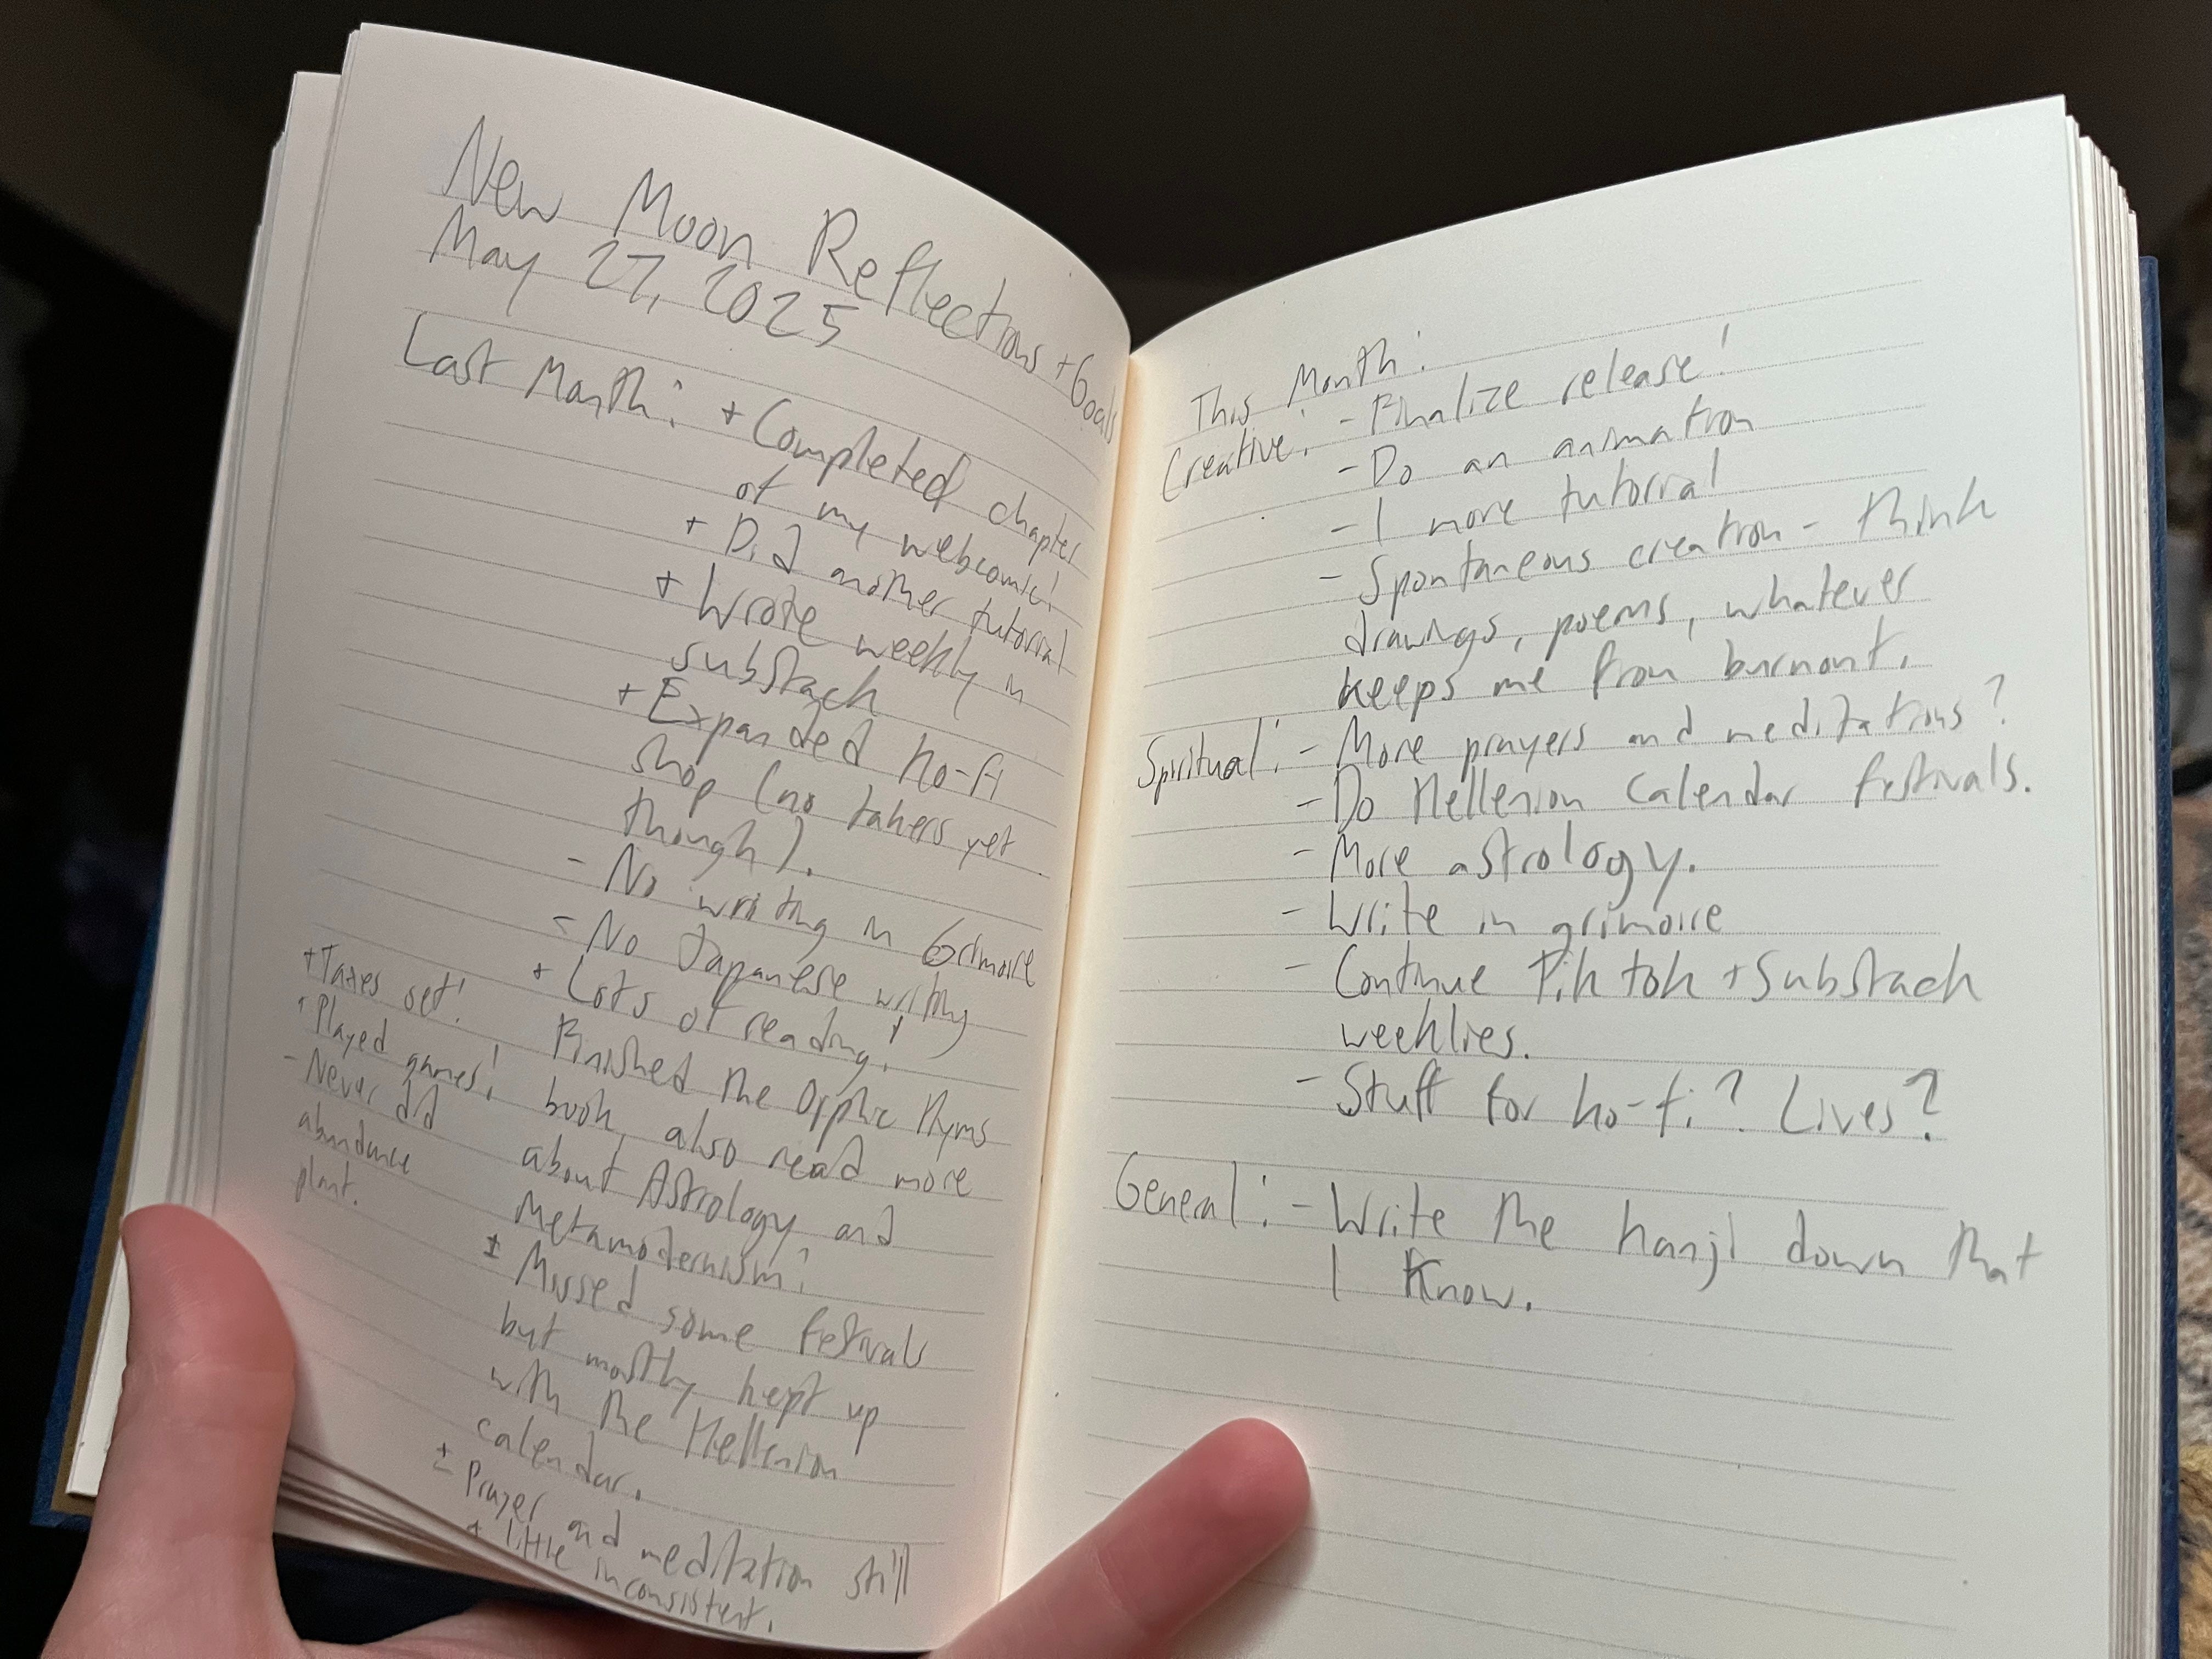 New Moon Reflections + Goals
May 27, 2025
Last Month: + Completed chapter
of my webcomic!
+ Did another tutorial
+ Wrote weekly in
substack
+ Expanded ko-fi
shop (no takers yet
though).
- No writing in Grimoire
- No Japanese writing
+ Lots of reading!
Finished the Orphic Hyms
book, also read more
about Astrology and
Metamodernism!
± Missed some festivals
but mostly kept up
with the Hellenion
calendar.
± Prayer and meditation still
a little inconsistent.
+ Taxes set!
+ Played games!
- Never did
abundance
plant.
This Month:
Creative: - Finalize release!
- Do an animation
- 1 more tutorial
- Spontaneous creation - think
drawings, poems, whatever
keeps me from burnout.
Spiritual: - More prayers and meditations?
- Do Hellenion Calendar festivals.
- More astrology.
- Write in grimoire
- Continue Tik tok + Substack
weeklies.
- Stuff for ko-fi? Lives?
General: - Write the kanji down that
I know.